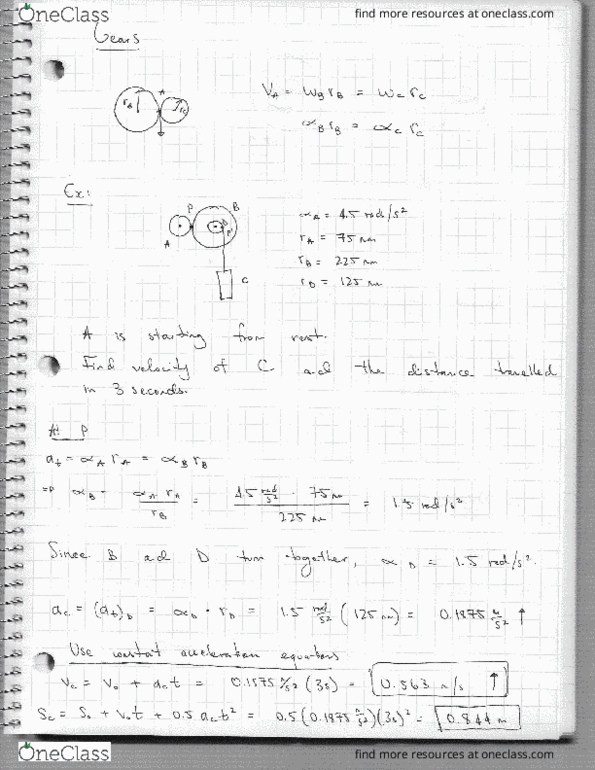 OneClass
find more resources at oneclass.com
Gears
A
r_B
r_C
V_A = ω_B r_B = ω_C r_C
α_B r_B = α_C r_C
Ex:
P
B
D
A
C
α_A = 4.5 rad/s²
r_A = 75 mm
r_B = 225 mm
r_D = 125 mm
A is starting from rest.
Find velocity of C and the distance travelled
in 3 seconds.
At P
a_t = α_A r_A = α_B r_B
=> α_B = α_A r_A / r_B = 4.5 rad/s² · 75 mm / 225 mm = 1.5 rad/s²
Since B and D turn together, α_D = 1.5 rad/s².
a_C = (a_t)_D = α_D · r_D = 1.5 rad/s² (125 mm) = 0.1875 m/s² ↑
Use constant acceleration equations
V_C = V_0 + a_C t = 0.1875 m/s² (3s) = 0.563 m/s ↑
S_C = S_0 + V_0 t + 0.5 a_C t² = 0.5 (0.1875 m/s²)(3s)² = 0.844 m
OneClass
find more resources at oneclass.com